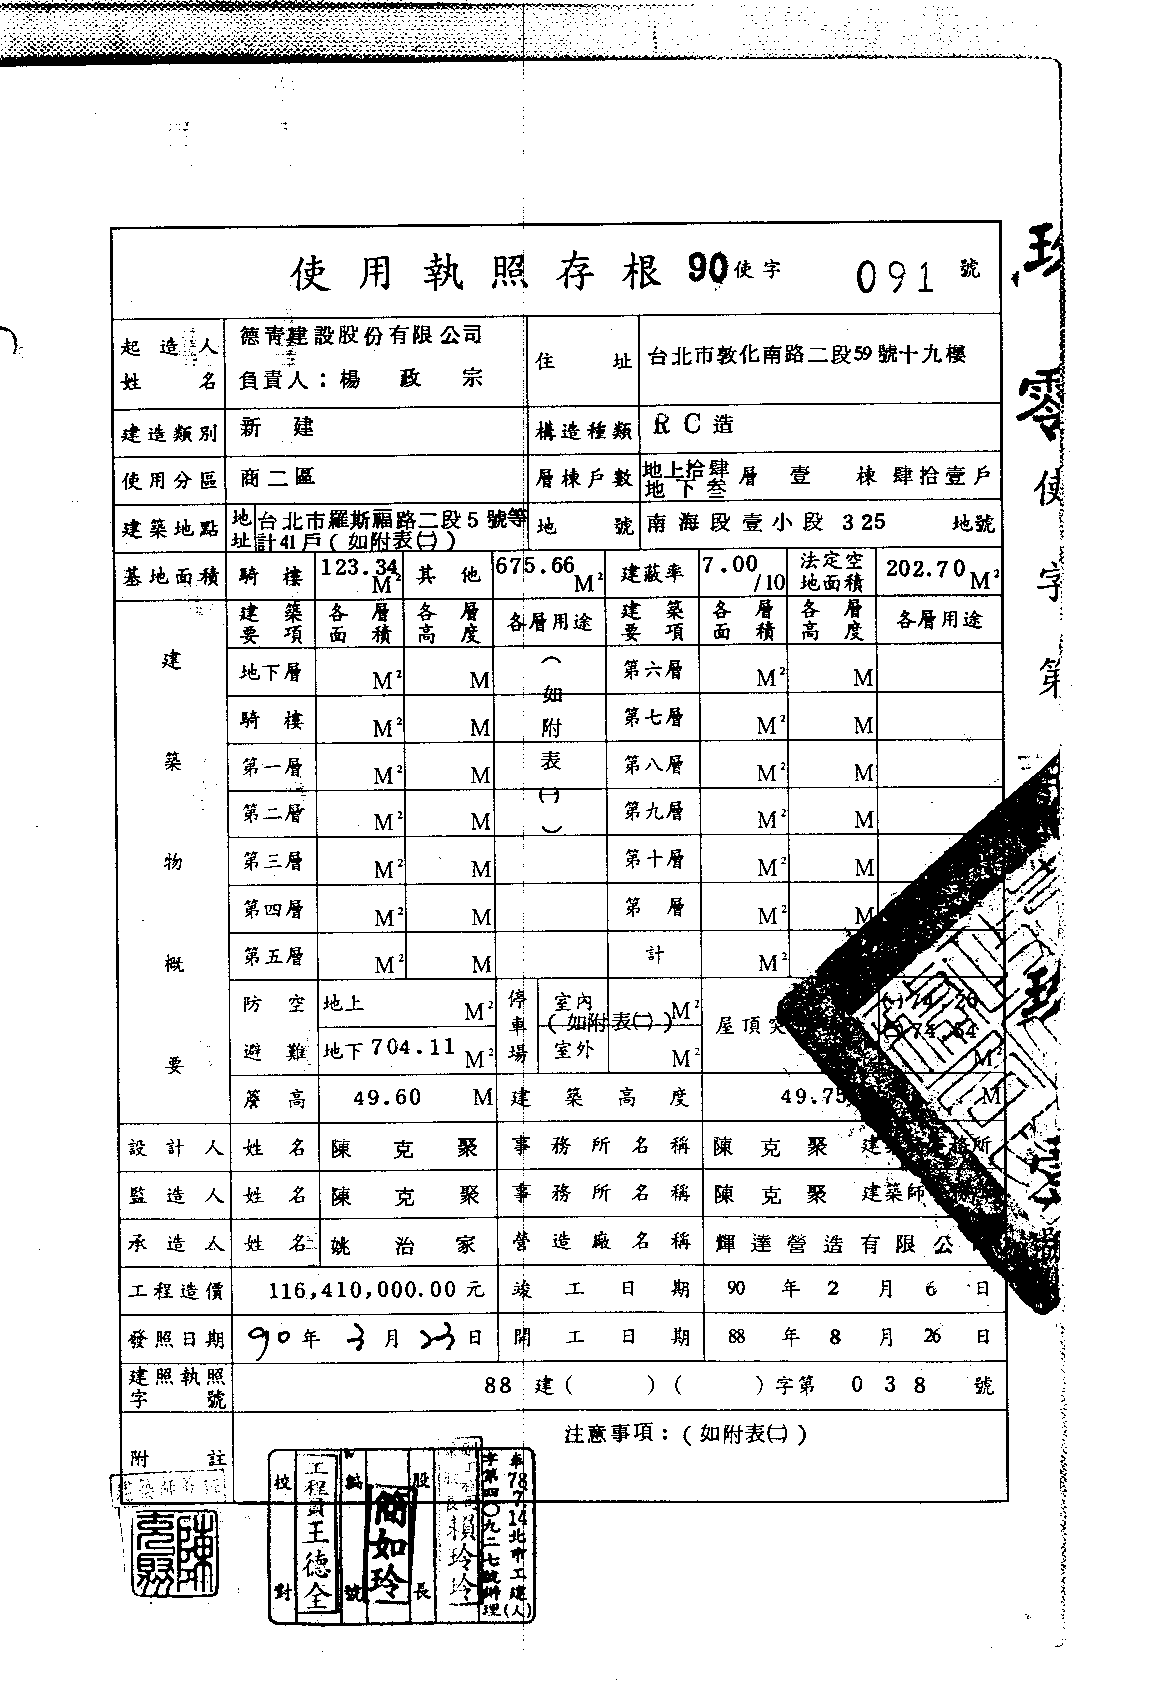 使用執照存根 90使字 091 號
起造人姓名 德靑建設股份有限公司 負責人：楊政宗 住址 台北市敦化南路二段59號十九樓
建造類別 新建 構造種類 RC造
使用分區 商二區 層棟戶數 地上拾肆 地下叁 層 壹棟 肆拾壹戶
建築地點 地址 台北市羅斯福路二段5號等計41戶(如附表㈡) 地號 南海段壹小段 325 地號
基地面積 騎樓 123.34 M² 其他 675.66 M² 建蔽率 7.00/10 法定空地面積 202.70 M²
建築物概要
建築要項 各層面積 各層高度 各層用途 建築要項 各層面積 各層高度 各層用途
地下層 M² M 第六層 M² M
騎樓 M² M 第七層 M² M
第一層 M² M 第八層 M² M
第二層 M² M 第九層 M² M
第三層 M² M 第十層 M² M
第四層 M² M 第 層 M² M
第五層 M² M 計 M²
(如附表㈡)
防空避難 地上 M² 停車場 室內 M² 屋頂突
地下 704.11 M² 室外 M² M²
(如附表㈡)
簷高 49.60 M 建築高度 49.75 M
設計人 姓名 陳克聚 事務所名稱 陳克聚
監造人 姓名 陳克聚 事務所名稱 陳克聚 建築師
承造人 姓名 姚治家 營造廠名稱 輝達營造有限公
工程造價 116,410,000.00元 竣工日期 90年2月6日
發照日期 90年3月23日 開工日期 88年8月26日
建照執照字號 88建( )( )字第038號
附註 注意事項：(如附表㈡)
校對 工程員王德全
號 簡如玲
股長 賴玲玲
78.7.14北市工建(人)
字第四〇九二七號辦理
零使字第